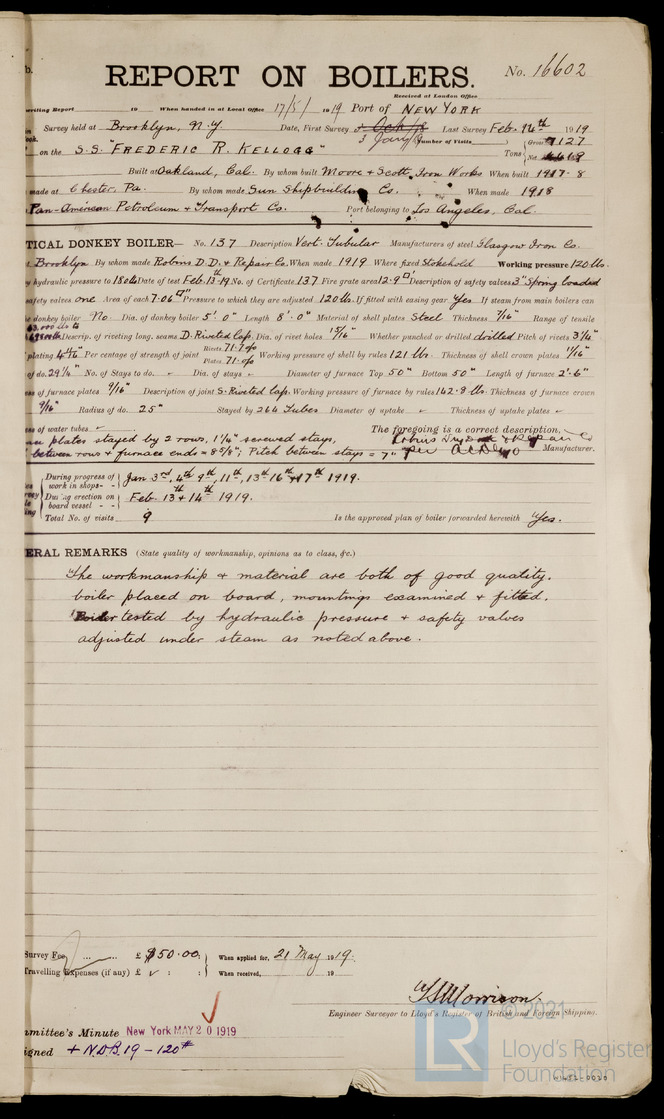 REPORT ON BOILERS.
No. 16602
Received at London Office
When handed in at Local Office 17/5/1919 Port of NEW YORK
Survey held at Brooklyn, N.Y. Date, First Survey Last Survey Feb. 14th 1919
on the S.S. "FREDERIC R. KELLOGG" Number of Visits Tons Gross 7127 Net
Built at Oakland, Cal. By whom built Moore & Scott Iron Works When built 1917-8
made at Chester, Pa. By whom made Sun Shipbuilding Co. When made 1918
Pan-American Petroleum & Transport Co. Port belonging to Los Angeles, Cal.
TICAL DONKEY BOILER— No. 137 Description Vert. Tubular Manufacturers of steel Glasgow Iron Co.
Brooklyn By whom made Robins D.D. & Repair Co. When made 1919 Where fixed Stokehold Working pressure 120 lbs.
y hydraulic pressure to 180 lbs Date of test Feb. 13th 19 No. of Certificate 137 Fire grate area 12.9 □' Description of safety valves 3" Spring loaded
safety valves one Area of each 7.06 □" Pressure to which they are adjusted 120 lbs. If fitted with easing gear Yes If steam from main boilers can
he donkey boiler No. Dia. of donkey boiler 5'. 0" Length 8'. 0" Material of shell plates Steel Thickness 7/16" Range of tensile
Descrip. of riveting long. seams D. Riveted Lap. Dia. of rivet holes 15/16" Whether punched or drilled drilled Pitch of rivets 3 1/4"
plating Per centage of strength of joint Rivets 71.7% Plates 71.% Working pressure of shell by rules 121 lbs. Thickness of shell crown plates 1/16"
of do. 29 1/4" No. of Stays to do. - Dia. of stays - Diameter of furnace Top 50" Bottom 50" Length of furnace 2'-6"
ss of furnace plates 9/16" Description of joint S. Riveted Lap. Working pressure of furnace by rules 142.8 lbs. Thickness of furnace crown
9/16" Radius of do. 25" Stayed by 264 Tubes Diameter of uptake - Thickness of uptake plates -
ess of water tubes - The foregoing is a correct description,
plates stayed by 2 rows, 1 1/4" screwed stays, Robins Dry Dock & Repair Co
between rows & furnace ends = 8 5/8"; Pitch between stays = 7" Per Manufacturer.
During progress of work in shops - - Jan 3rd, 4th 9th, 11th, 13th 16th & 17th 1919.
During erection on board vessel - - Feb. 13th & 14th 1919.
Total No. of visits 9 Is the approved plan of boiler forwarded herewith Yes.
ERAL REMARKS (State quality of workmanship, opinions as to class, &c.)
The workmanship & material are both of good quality.
boiler placed on board, mountings examined & fitted.
Boiler tested by hydraulic pressure & safety valves
adjusted under steam as noted above.
Survey Fee ... ... £ $50.00 : When applied for, 21 May 1919.
Travelling Expenses (if any) £ : : When received, 19
Engineer Surveyor to Lloyd's Register of British and Foreign Shipping.
mmittee's Minute New York MAY 20 1919
igned + N.D.B. 19 - 120#
© 2021
LR
Lloyd's Register
Foundation